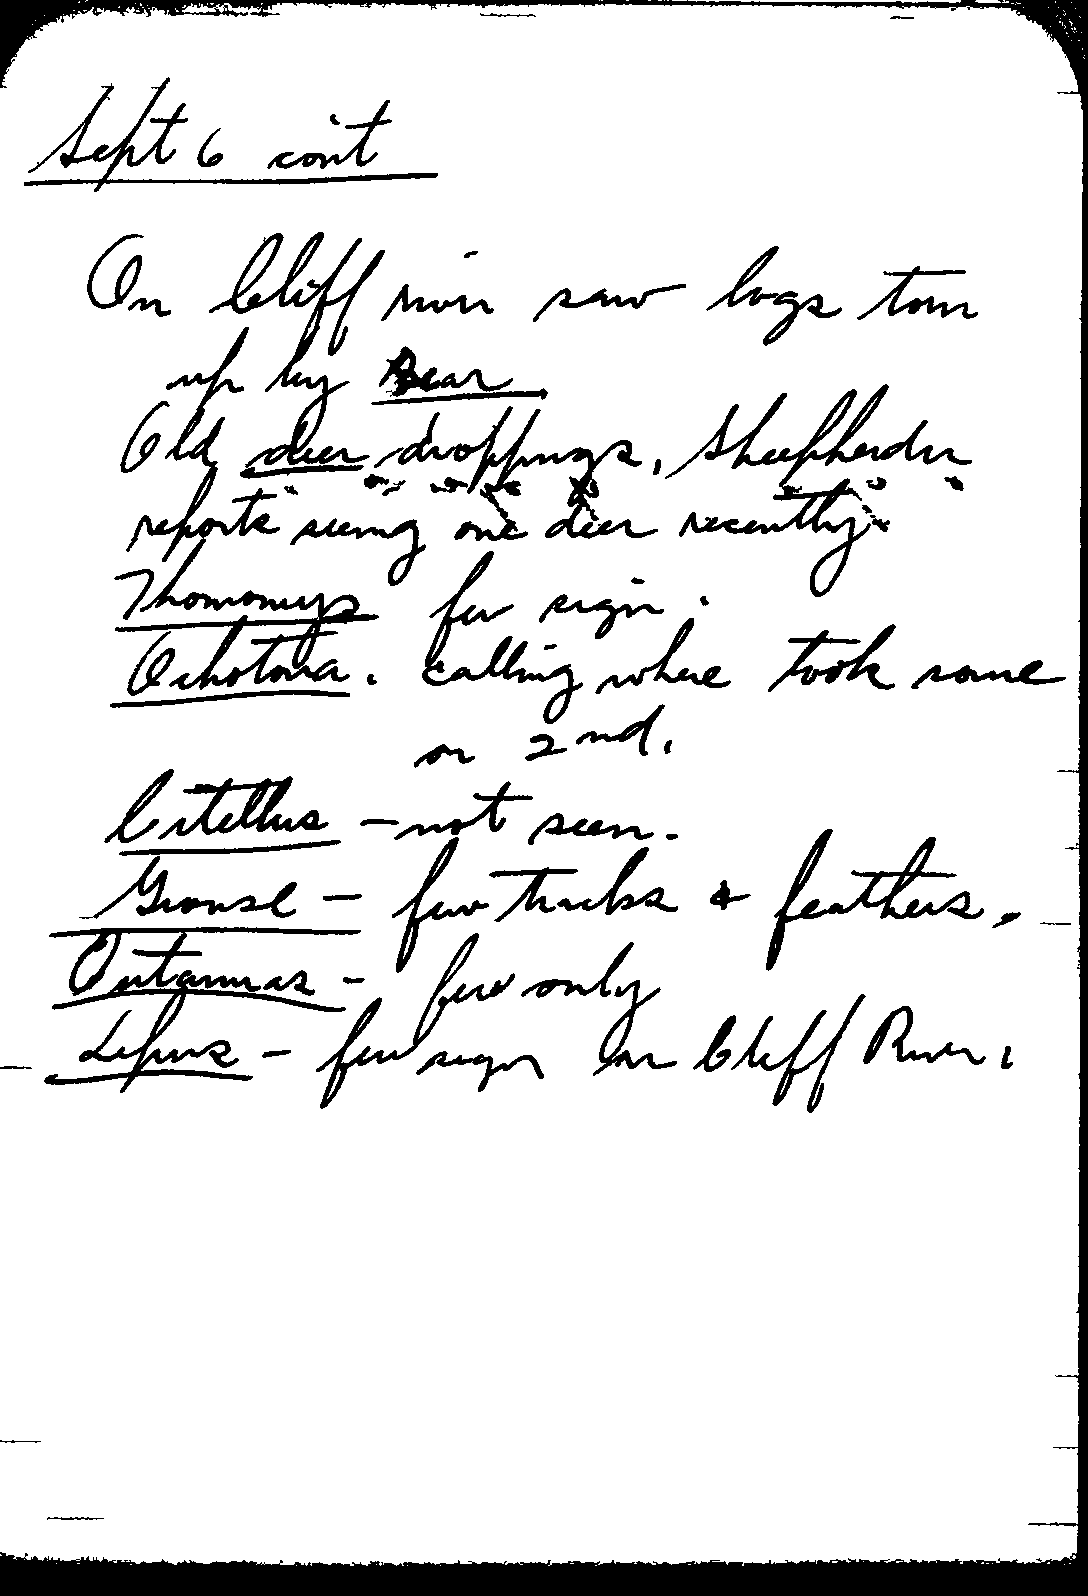 Sept 6 con't
On Cliff river saw logs torn
up by Bear
Old deer droppings, Sheepherder
reports seeing one deer recently
Thomomys few sign.
Ochotona. calling where took some
on 2nd.
Citellus – not seen.
Grouse – few tracks & feathers.
Eutamias – few only
Lepus – few sign on Cliff River.